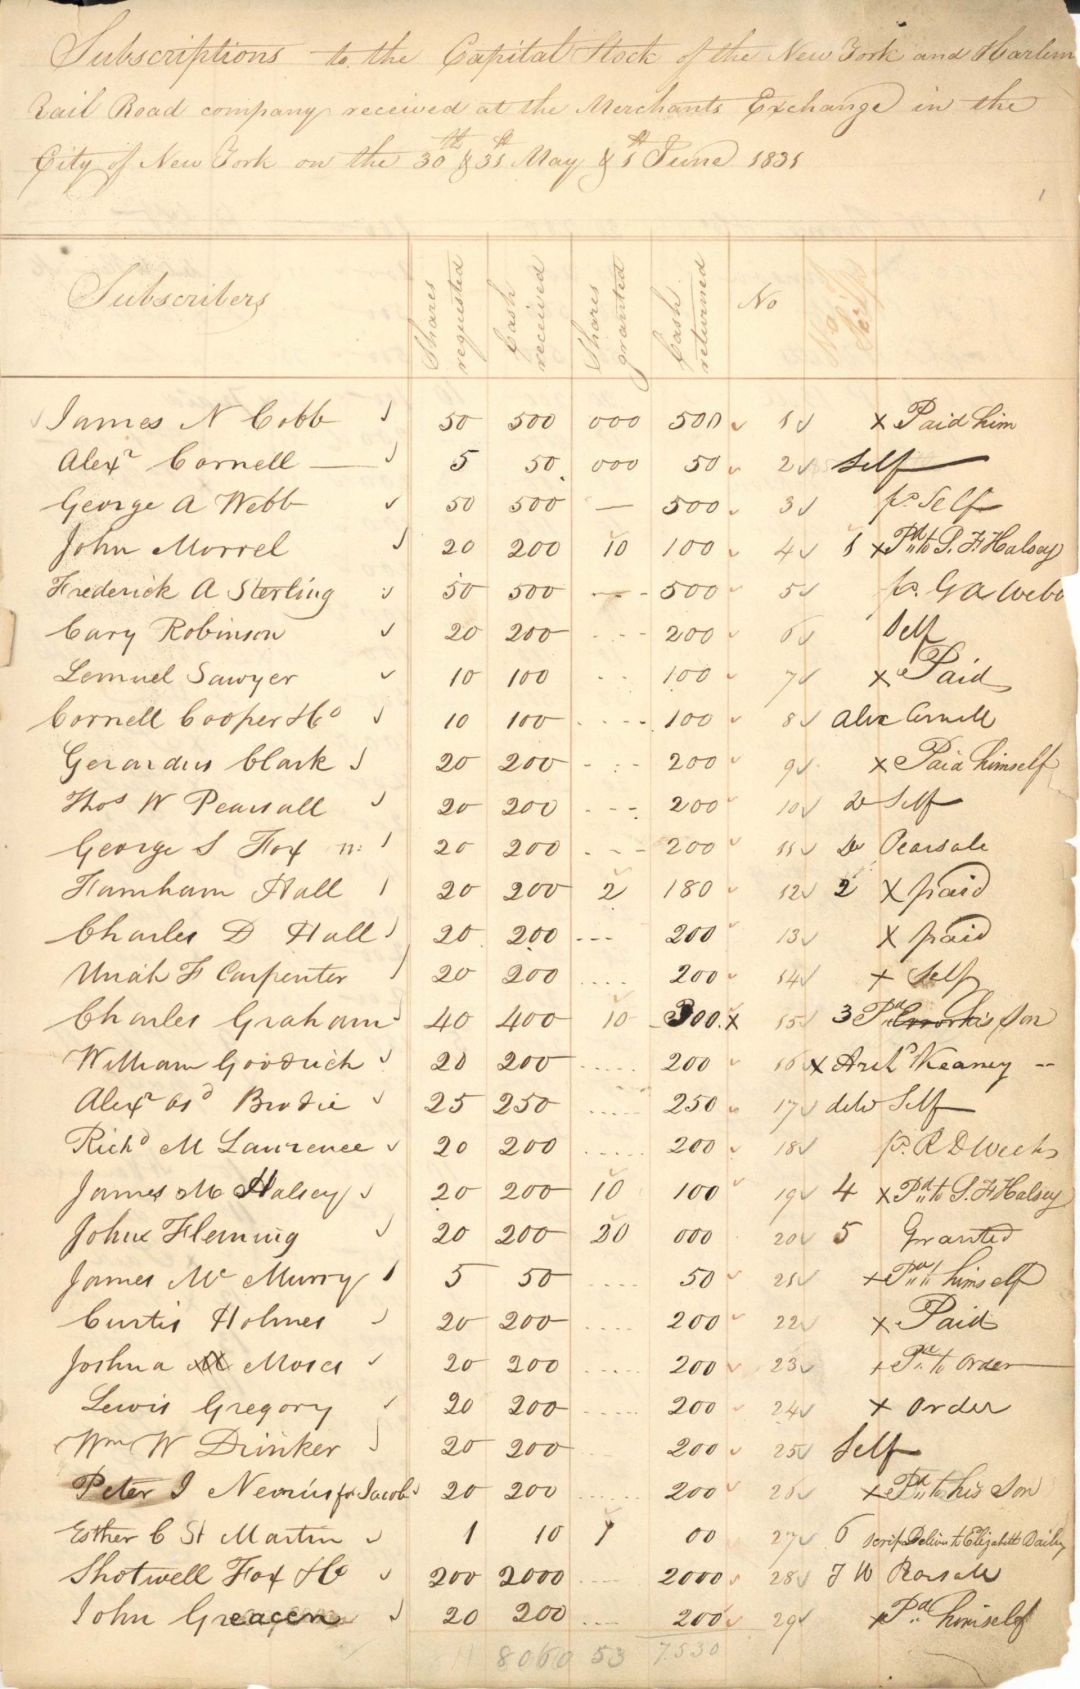 Subscriptions to the Capital Stock of the New York and Harlem
Rail Road company received at the Merchants Exchange in the
City of New York on the 30th & 31st May & 1st June 1831
1
Subscribers Shares requested Cash received Shares granted Cash returned No No of Scrip
James N Cobb 50 500 000 500 1 x Paid him
Alexr Cornell 5 50 000 50 2 Self
George A Webb 50 500 — 500 3 pr Self
John Morrel 20 200 10 100 4 1 x Pd to S. F Halsey
Frederick A Sterling 50 500 --- 500 5 pr. G A Webb
Cary Robinson 20 200 --- 200 6 Self
Lemuel Sawyer 10 100 -- 100 7 x Paid
Cornell Cooper & Co 10 100 ---- 100 8 Alex Cornell
Gerardus Clark 20 200 --- 200 9 x Paid himself
Thos W Pearsall 20 200 --- 200 10 do Self
George S Fox 20 200 --- 200 11 Do Pearsale
Farnham Hall 20 200 2 180 12 2 x paid
Charles D Hall 20 200 --- 200 13 x paid
Uriah F Carpenter 20 200 .... 200 14 + Self
Charles Graham 40 400 10 300 x 15 3 Pd his Son
William Goodrich 20 200 ..... 200 16 x Archd Kearney --
Alexr Brodie 25 250 ..... 250 17 Self
Richd M Lawrence 20 200 ..... 200 18 pr. R D Weeks
James M Halsey 20 200 10 100 19 4 x Pd to S. F Halsey
John Fleming 20 200 20 000 20 5 Granted
James Mc Murry 5 50 .... 50 21 + Pd himself
Curtis Holmes 20 200 .... 200 22 x Paid
Joshua Moses 20 200 ..... 200 23 + Pd to order
Lewis Gregory 20 200 ..... 200 24 x order
Wm W Drinker 20 200 ... 200 25 Self
Peter I Nevius for Jacob 20 200 ..... 200 26 x Pd to his Son
Esther C St Martin 1 10 1 00 27 6 scrip Deliv to Elizabeth Dailey
Shotwell Fox & Co 200 2000 ---- 2000 28 T W Pearsale
John Greacen 20 200 ... 200 29 x Pd himself
8060 53 7530